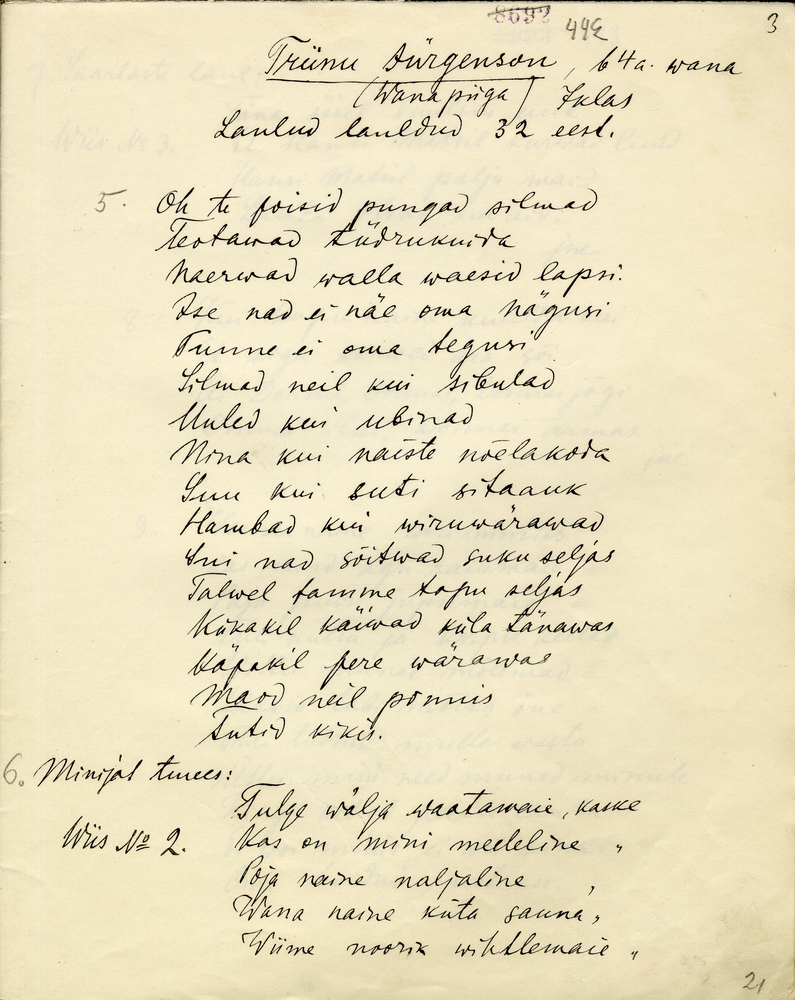 8692 442 3
Triinu Jürgenson, 64 a. wana
(Wanapiiga) Iklas
Laulud lauldud 32 eest.
5. Oh te poisid pungad silmad
Teotawad tüdrukuida
Naerwad walla waesid lapsi.
Ise nad ei näe oma nägusi
Tunne ei oma tegusi
Silmad neil kui sibulad
Uuled kui ubinad
Nina kui naiste nõelakoda
Suu kui suti sitaauk
Hambad kui wiruwärawad
Sui nad sõitwad suku seljas
Talwel tamme topu seljas
Kükakil käiwad küla tänawas
Käpakil pere wärawas
Maod neil ponnis
Tutid kikis.
6. Minijat tuues:
Tulge wälja waatamaie, kaske
Wiis № 2. Kas on mini meeleline "
Poja naine naljaline "
Wana naine küta sauna "
Wiime noorik wihtlemaie "
21